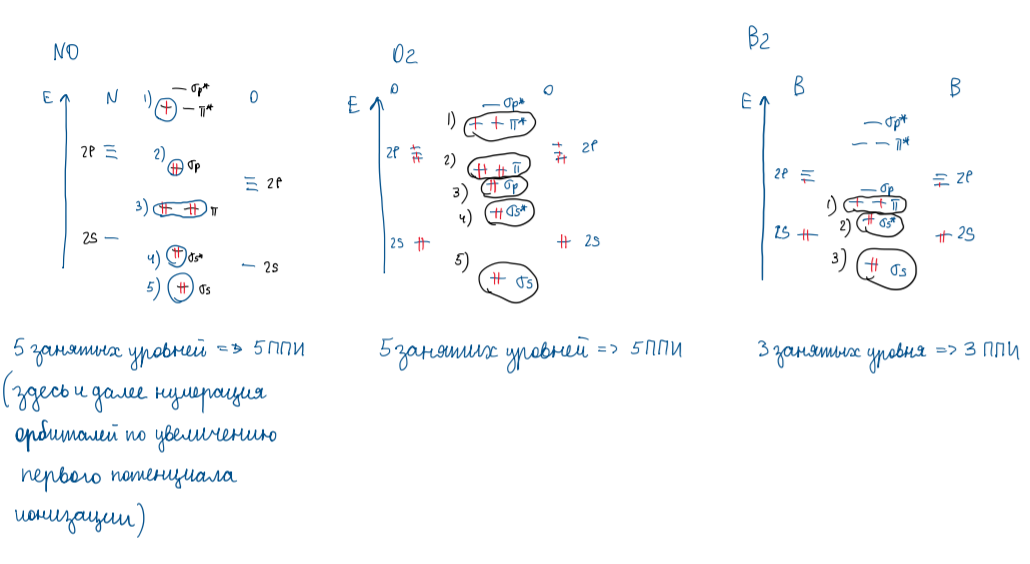 NO
E
N
O
1)
σp*
π*
2p
2)
σp
2p
3)
π
2s
4)
σs*
2s
5)
σs
5 занятых уровней => 5 ППИ
(здесь и далее нумерация
орбиталей по увеличению
первого потенциала
ионизации)
O2
E
O
O
σp*
1)
π*
2p
2p
2)
π
3)
σp
4)
σs*
2s
2s
5)
σs
5 занятых уровней => 5 ППИ
B2
B
B
E
σp*
π*
2p
2p
σp
1)
π
2)
σs*
2s
2s
3)
σs
3 занятых уровня => 3 ППИ